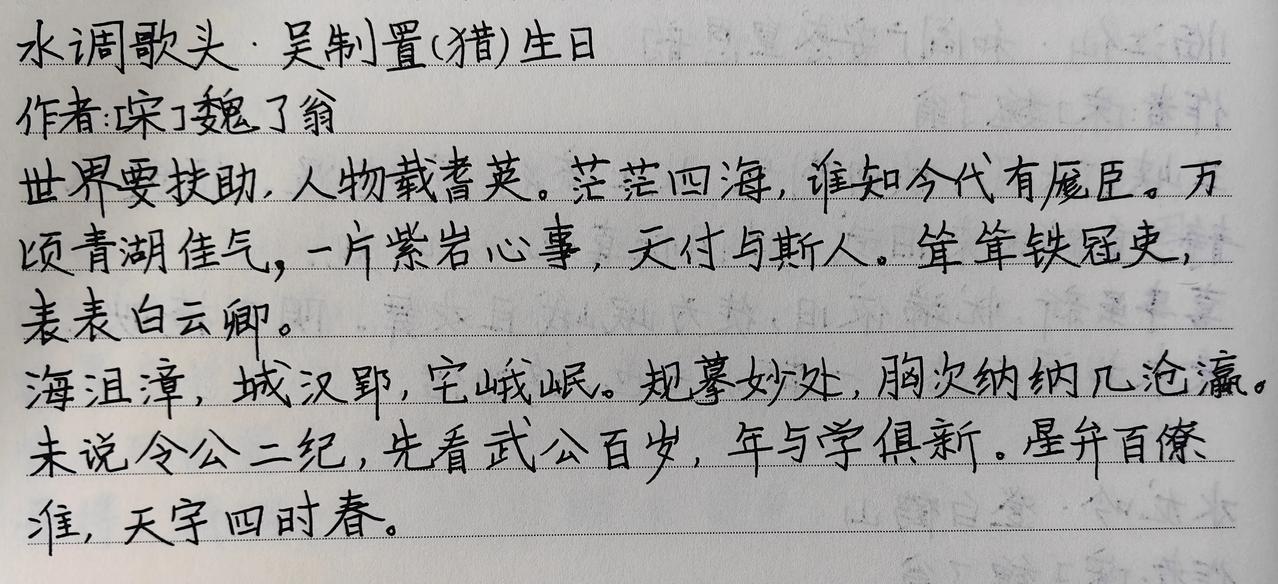 水调歌头·吴制置(猎)生日
作者:[宋]魏了翁
世界要扶助,人物载耆英。茫茫四海,谁知今代有厖臣。万
顷青湖佳气,一片紫岩心事,天付与斯人。耸耸铁冠吏,
表表白云卿。
海沮漳,城汉郢,宅峨岷。规摹妙处,胸次纳纳几沧瀛。
未说令公二纪,先看武公百岁,年与学俱新。星弁百僚
准,天宇四时春。